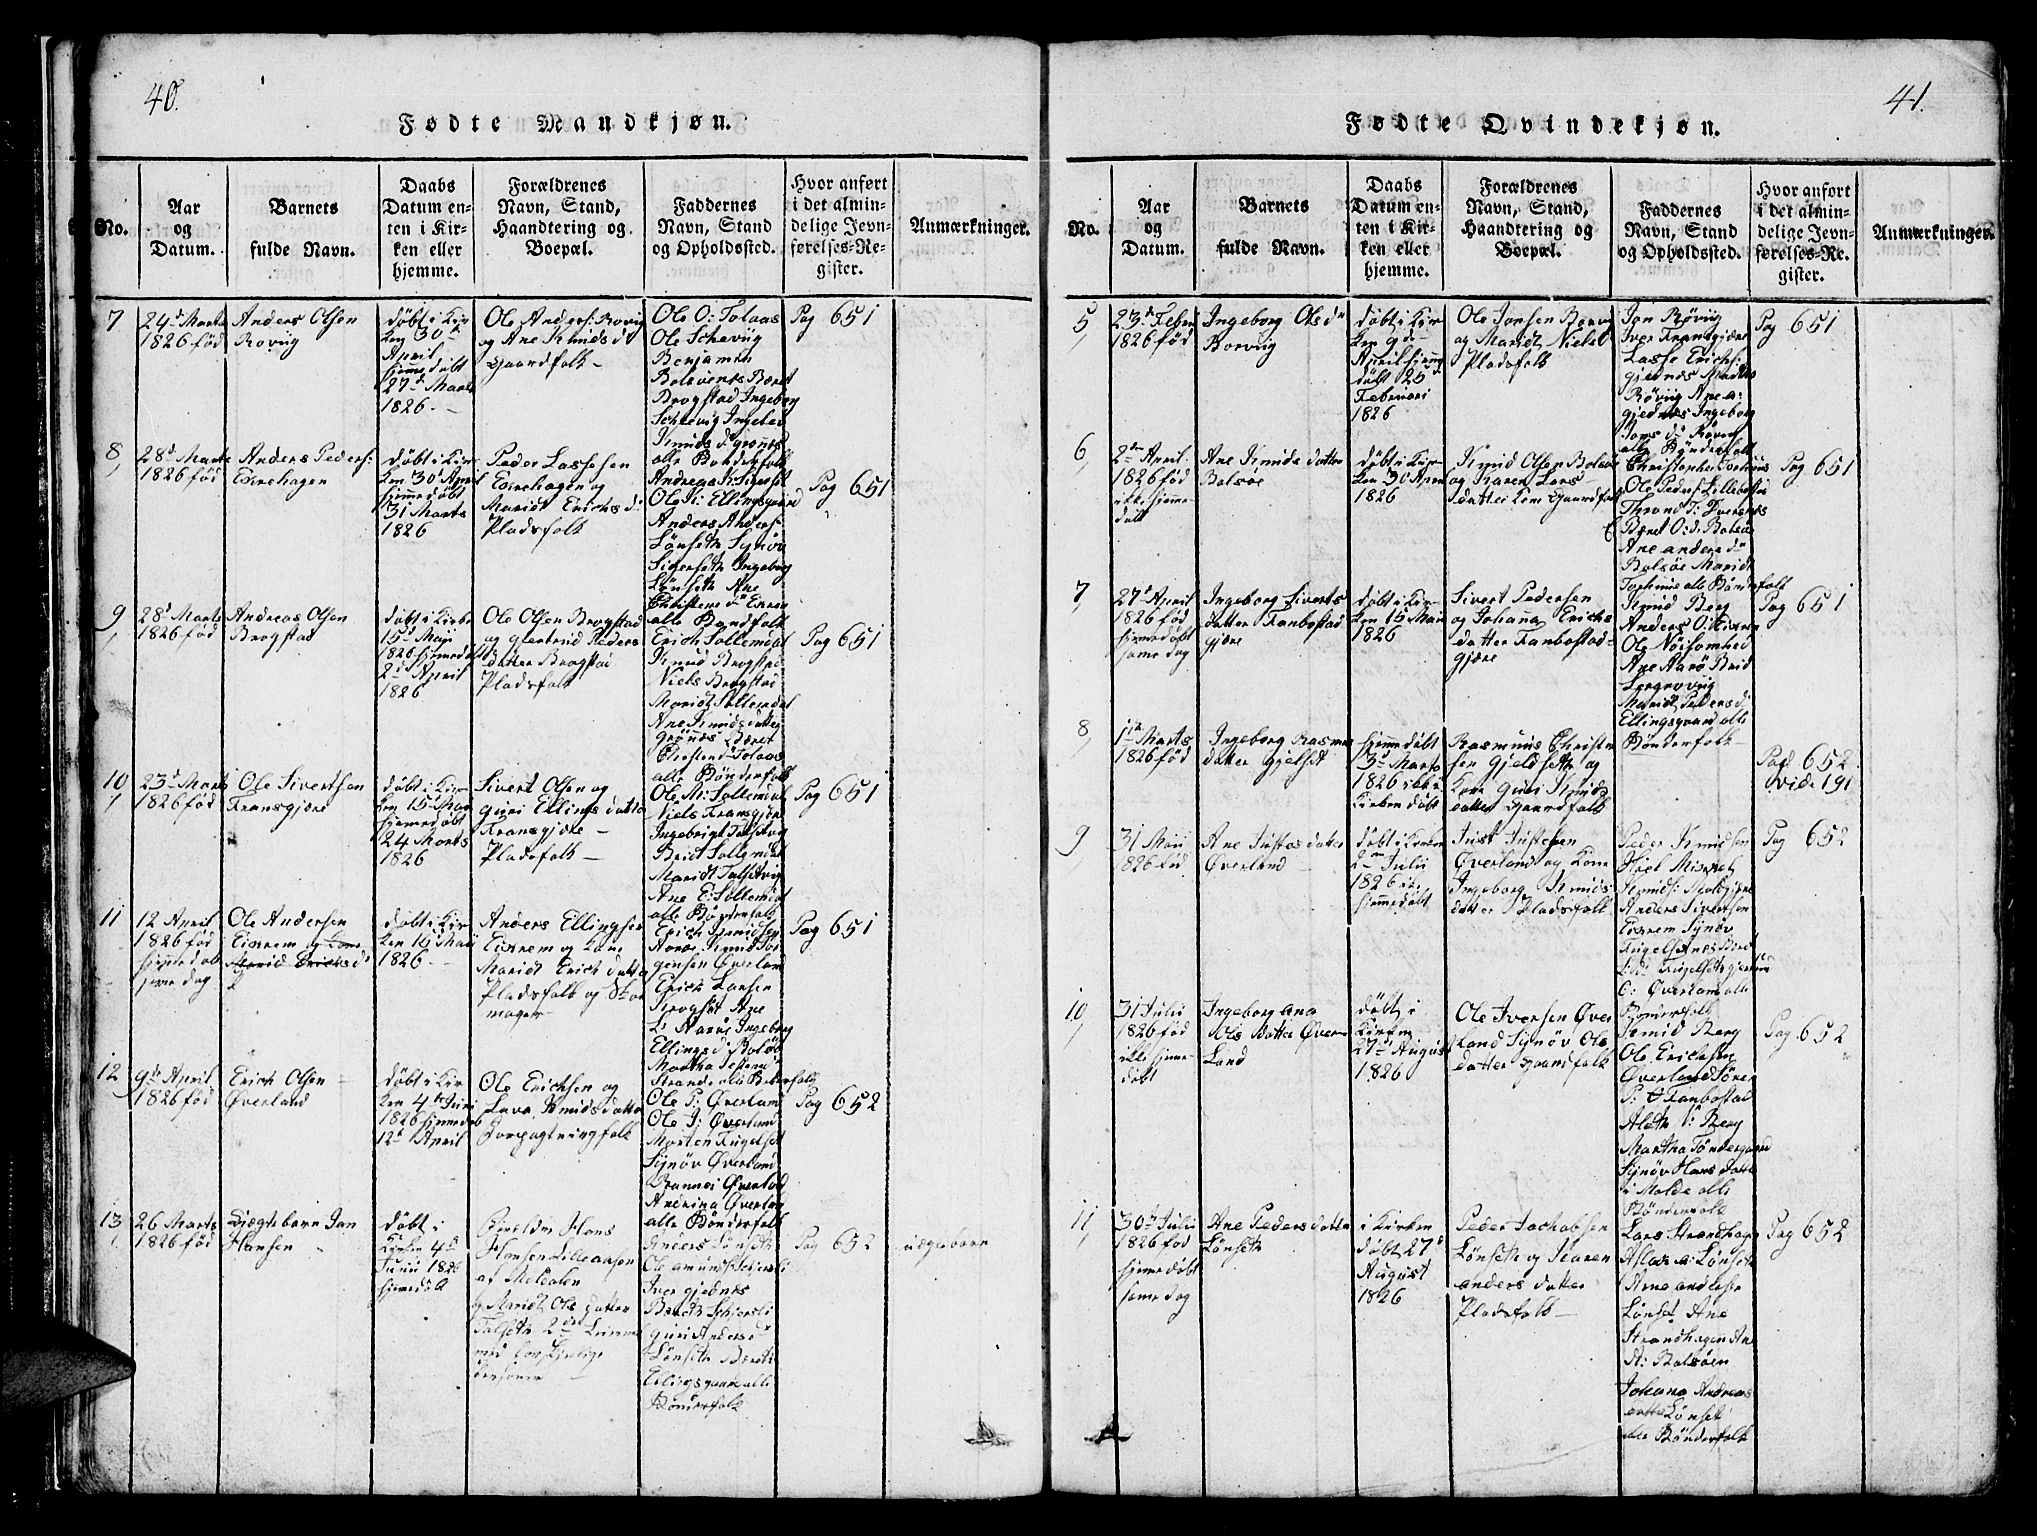 40.
Fødte Mandkjøn.
No.
Aar
og
Datum.
Barnets
fulde Navn.
Daabs
Datum en-
ten i Kir-
ken eller
hjemme.
Forældrenes
Navn, Stand,
Haandtering og
Boepæl.
Faddernes
Navn, Stand
og Opholdssted.
Hvor anført
i det almin-
delige Jevn-
førelses-Re-
gister.
Anmærkninger.
7
24d Marts
1826 fød
Anders Olsen
Rovüg
døbt i Kir
ken 30d
April
hjemmedøbt
27d Marts
1826.
Ole Anders: Rovig
og Ane Knuds d
Gaardfolk
Ole O: Tolaas
Ole Schevüg
Benjamin
Bolsvents Beret
Brogstad Ingeborg
Schevüg Ingebor
Knuds d. grønes
alle Bondefolk
Pag 651
8
28d Marts
1826 fød
Anders Peders:
Eirehagen
døbt i Kir
ken 30 April
hjemmedøbt
31 Marts
1826
Peder Lassesen
Eirehagen og
Maridt Erichs d:
Pladsfolk
Andreas K: Sigerset
Ole K: Ellingsgaard
Anders Anders:
Lønseth Synøv
Sigerseth Ingeborg
Lønseth Ane
Alle Bondfolk
Pag 651
9
28d Marts
1826 fød
Andreas Olsen
Brogstad
døbt i Kirke
15d Maji
1826 hjemmedøbt
2d April
1826
Ole Olsen Brogstad
og Giertrud Peders
datter Brogstad
Pladsfolk
Erich Sollemdal
Knud Brogstad
Niels Brogstad
Maridt Sollemdal
Ane Knudsdatter
grønes Beret
Tolaas
alle Bønderfolk
Pag 651
10
23d Marts
1826 fød
Ole Sivertsen
Fransgjære
døbt i Kir
ken 15 Mai
hjemmedøbt
24 Marts
1826
Sivert Olsen og
Guri Ellings datter
Fransgjære
Pladsfolk
Ole M: Sollemdal
Niels Fransgjære
Ingebrigt Talsetvig
Brit Sollemdal
Maridt Talsetvig
Ane E: Sollemdal
alle Bønderfolk
Pag 651
11
12 April
1826 fød
hjemmedøb
same dag
Ole Andersen
Eikrem og kone
Marid Erichs d
døbt i Kir
ken 15 Maii
1826
Anders Ellingsen
Eikrem og kone
Maridt Erich datter
Pladsfolk og Sko
mager
Erich Knudsen
Aarøe Knud Jør
gensen Øverland
Erich Larsen
Krogset Ane
L: Aarøe Ingeborg
Ellings d: Bolsøe
Martha
Strande alle Bønderfolk
Pag 651
12
9de April
1826 fød
Erich Olsen
Øverland
døbt i Kir
ken 4de Juni
1826 hjemmedøb
12d April
Ole Erichsen og
Lava Knudsdatter
Forpagtningfolk
Ole P: Øverland
Ole J: Øverland
Morten Fugelset
Synøv Øverland
Rannei Øverland
Andrina Øverland
alle Bønderfolk
Pag 652
13
26 Marts
1826 fød
Uægtebarn Jan
Hansen
døbt i
Kirken 4d
Junii 1826
hjemedøbt
Hans
Hansen Lilleaasen
af Meldalen
og Maridt Ols datter
Talseth 2den Leiermaal
med forskjelige
Personer
Anders Lønseth
Ole Amunds Schjersli
Iver gjednes
Beret Schjersli
Guri Anders d
Lønseth Beret
Elingsgaard alle
Bønderfolk
Pag 652
uægtebarn
41.
Fødte Qvindekjøn.
No.
Aar
og
Datum.
Barnets
fulde Navn.
Daabs
Datum en-
ten i Kir-
ken eller
hjemme.
Forældrenes
Navn, Stand,
Haandtering og
Boepæl.
Faddernes
Navn, Stand
og Opholdssted.
Hvor anført
i det almin-
delige Jevn-
førelses-Re-
gister.
Anmærkninger.
5
23d Febr
1826 fød
Ingeborg Ols dr
Borvüg
døbt i Kir
ken 9de
April hjemme
døbt 25d
Februari
1826
Ole Jonsen Borvig
og Maridt Niels d
Pladsfolk
Jon Røvüg
Iver Fransgjære
Lasse Erichs:
gjednes Marithe
Røvüg Ane a:
gjednes Ingeborg
Jons d: Røvüg
alle Bønderfolk
Pag 651
6
2den April
1826 fød
ikke hjemme
døbt
Ane Knuds datter
Bolsøe
døbt i Kir
ken 30 April
1826
Knud Olsen Bolsøe
og Karen Lars
datter kone Gaardfolk
Christopher Torhüus
Ole Peders: Lillebostad
Thrond T:
Beret O: d: Bolsøe
Ane anders dr
Bolsøe Maridt
Torhuus alle Bøndefolk
Pag 651
7
27d April
1826 fød
hjemedøbt
same dag
Ingeborg Siverts
datter Fanbostad
gjære
døbt i Kir
ken 15 Maii
1826
Sivert Pedersen
og Johana Erichs
datter Fanbostad-
gjære
Knud Berg
Anders O: Eikrem
Ole Nøisomhed
Ane Aarø Brid
Maridt Peders d:
Ellingsgaard alle
Bønderfolk
Pag 651
8
1te Marts
1826 fød
Ingeborg Rasmus
datter Gjelset
hjemmedøbt
3d Marts
1826 ikke i
Kirken døbt
Rasmus Christen
sen Gjeldseth og
Kone Guri Knuds
datter Gaardfolk
Pag 652
vide 191
9
31 Maii
1826 fød
Ane Justas datter
Øverland
døbt i Kirken
2den Julii
1826
hjemedøbt
Just Justesen
Øverland og Kone
Ingeborg Knuds
datter Pladsfolk
Peder Knudsen
Hoel Mikkel
Knuds:
Anders Sivertsen
Eikrem Synøv
Øverland alle
Bønderfolk
Pag 652
10
31 Julii
1826 fød
ikke hjeme
døbt
Ingeborg Ana
Ols datter Øver-
land
døbt i
Kirken
27d August
1826
Ole Iversen Øver
land Synøv Ols
datter Gaardfolk
Knud Berg
Ole Erichsen
Øverland Søren
P: Fanbostad
Aleth K: Berg
Martha Tøndergaard
Synøv Hans datter
i Molde alle
Bønderfolk
Pag 652
11
30te Julii
1826 fød
hjemedøbt
same dag
Ane Peders datter
Lønseth
i Kirken
døbt 27d
August
1826
Peder Jachobsen
Lønseth og Karen
anders datter
Pladsfolk
Lars Strandhagen
Aslak a: Lønseth
Arne andersen
Lønset Ane
Strandhagen Ane
A: Bolsøen
Johana Andreas
datter Lønset
alle Bønderfolk
Pag 652